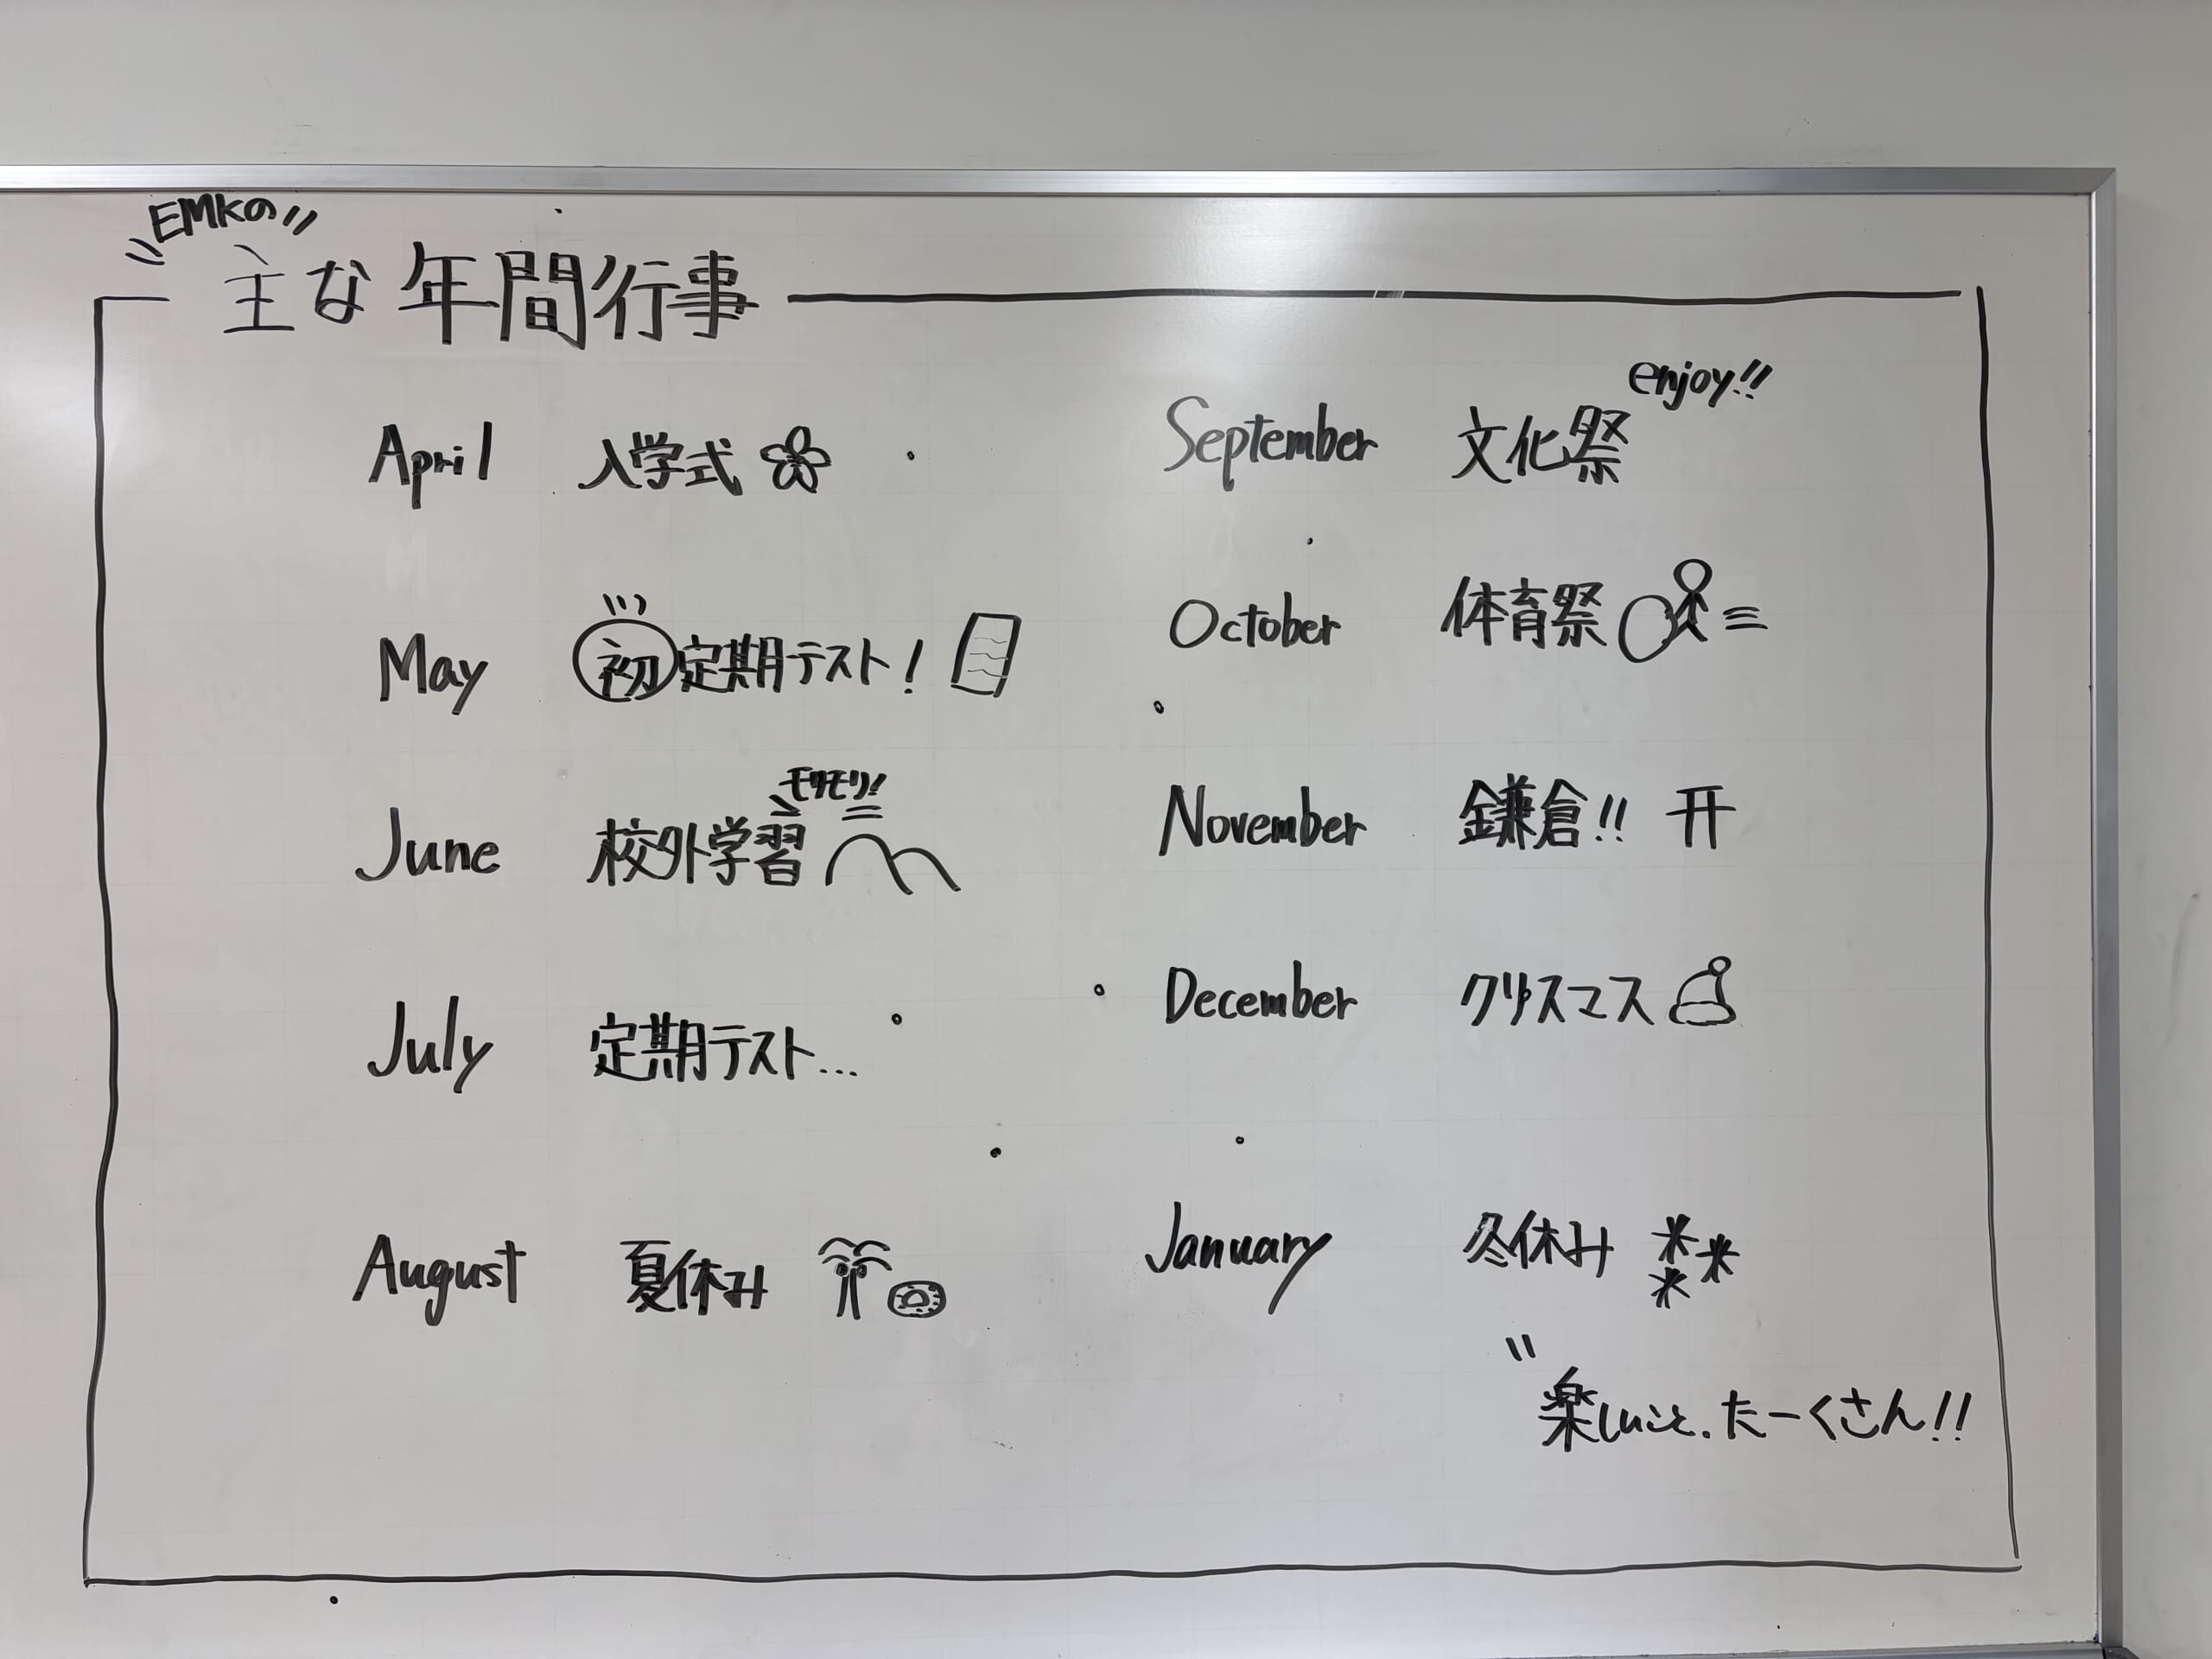 EMKの
主な年間行事
April 入学式
May 初定期テスト!
モリモリ!
June 校外学習
July 定期テスト...
August 夏休み
enjoy!!
September 文化祭
October 体育祭
November 鎌倉!!
December クリスマス
January 冬休み
楽しいこと、たーくさん!!